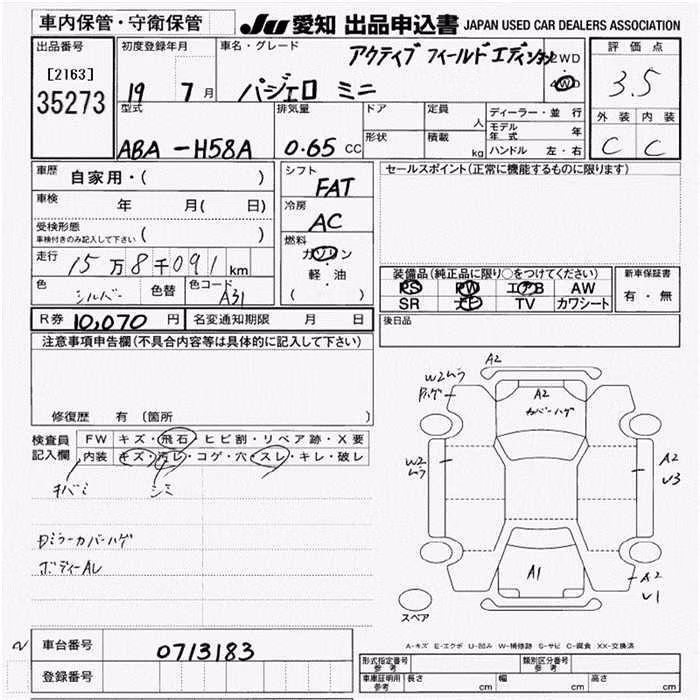 車内保管・守衛保管
JU 愛知 出品申込書 JAPAN USED CAR DEALERS ASSOCIATION
出品番号
[2163]
35273
初度登録年月
19 7 月
車名・グレード
アクティブ フィールド エディション
パジェロ ミニ
2WD
4WD
評価点
3.5
外装 内装
C C
型式
ABA-H58A
排気量
0.65 CC
ドア
形状
定員 人
積載 kg
ディーラー・並行
モデル年式 年
ハンドル 左・右
車歴 自家用・( )
車検 年 月( 日)
受検形態
車検付きのみ記入して下さい ( )
走行 15万8千091 km
色 シルバー 色替 色コード A31
シフト
FAT
冷房
AC
燃料
ガソリン
軽・油
( )
セールスポイント(正常に機能するものに限ります)
装備品(純正品に限り○をつけてください)
PS PW エアB AW
SR ナビ TV カワシート
新車保証書
有・無
R券 10,070 円 名変通知期限 月 日
後日品
注意事項申告欄(不具合内容等は具体的に記入して下さい)
修復歴 有 (箇所 )
検査員記入欄
FW キズ・飛石・ヒビ割・リペア跡・X要
内装 キズ・汚レ・コゲ・穴・スレ・キレ・破レ
キバミ シミ
Dミラーカバーハゲ
ボディーAL
A2
W2ムラ
A2
カバーハゲ
W2
ムラ
A2
U3
A1
A2
U1
スペア
A-キズ E-エクボ U-凹み W-補修跡 S-サビ C-腐食 XX-交換済
車台番号 0713183
登録番号
型式指定番号 参考
類別区分番号 参考
車庫証明用 参考 長さ cm 幅 cm 高さ cm